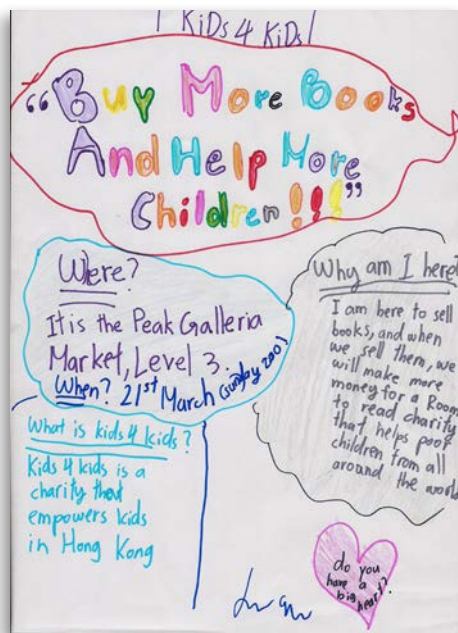 KiDS 4 KiDS
"Buy More Books
And Help More
Children!!!"
Were?
It is the Peak Galleria
Market, Level 3.
When? 21st March (Sunday
What is kids 4 kids?
Kids 4 kids is a
charity that
empowers kids
in Hong Kong
Why am I here?
I am here to sell
books, and when
we sell them, we
will make more
money for a Room
to read charity
that helps poor
children from all
around the world
do you
have a
big
heart?